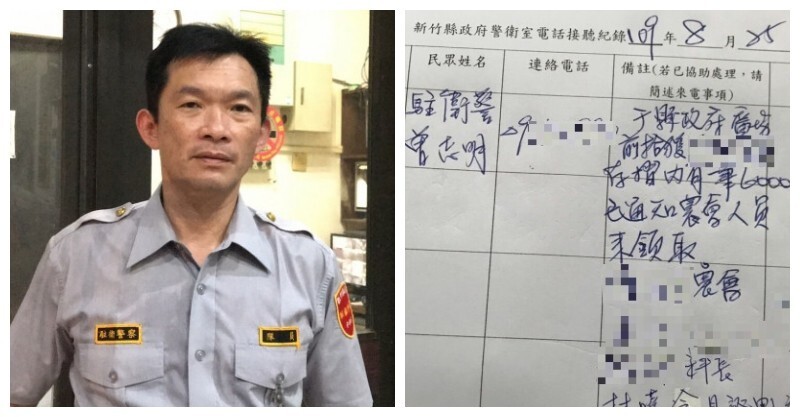 駐衛警察
隊員
新竹縣政府警衛室電話接聽紀錄 109年8月25
民眾姓名
連絡電話
備註(若已協助處理，請
簡述來電事項)
駐衛警
曾志明
09
于縣政府廣場
前拾獲
存摺內有一筆6000
已通知農會人員
來領取
農會
科長